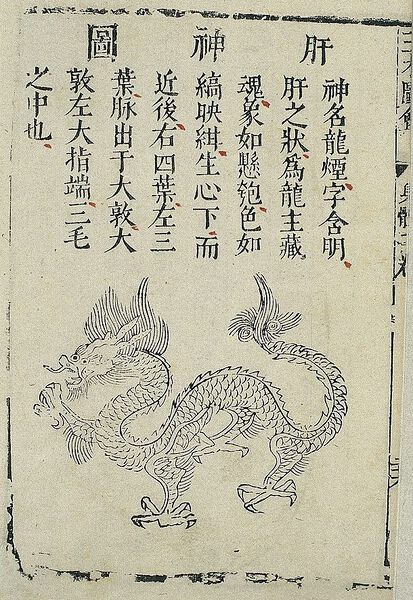 三才圖會
身體
肝神圖
神名龍煙字含明
肝之狀為龍主藏
魂象如懸匏色如
縞映紺生心下而
近後右四葉左三
葉脉出于大敦大
敦左大指端三毛
之中也